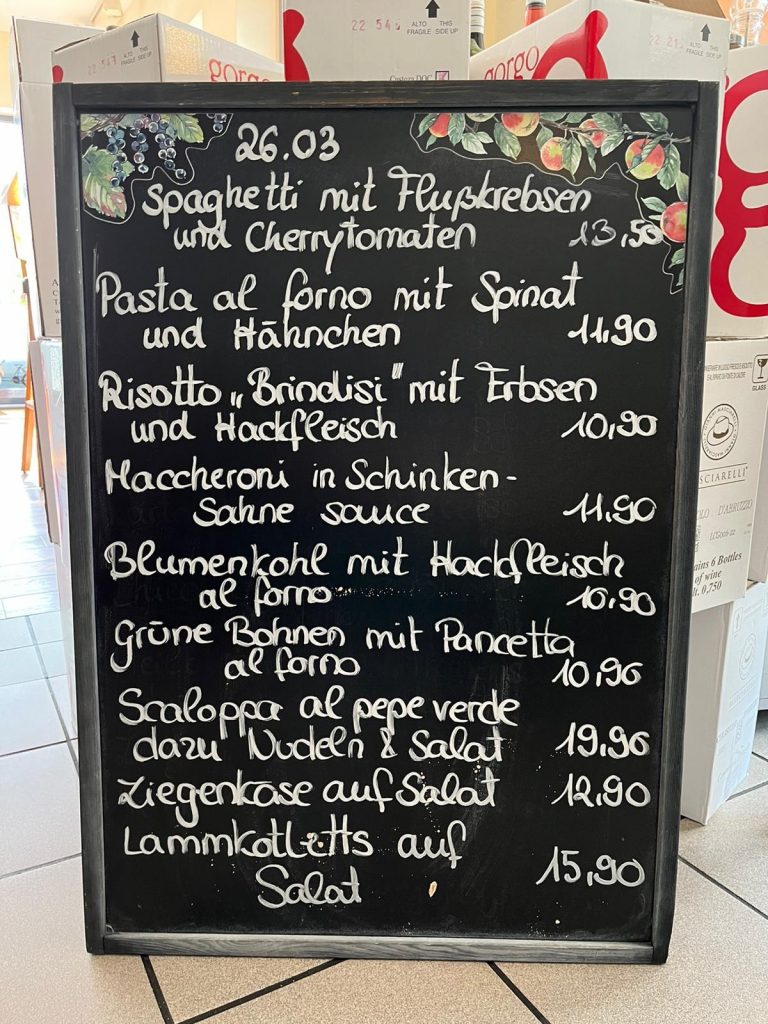 22 545
ALTO
FRAGILE
THIS
SIDE UP
gorgo
gorgo
26.03
Spaghetti mit Flußkrebsen
und Cherrytomaten 13,50
Pasta al forno mit Spinat
und Hähnchen 11,90
Risotto „Brindisi" mit Erbsen
und Hackfleisch 10,90
Maccheroni in Schinken-
Sahne sauce 11,90
Blumenkohl mit Hackfleisch
al forno 10,90
Grüne Bohnen mit Pancetta
al forno 10,90
Scaloppa al pepe verde
dazu Nudeln & Salat 19,90
Ziegenkäse auf Salat 12,90
Lammkotletts auf
Salat 15,90
GLASS
SCIARELLI
D'ABRUZZO
6 Bottles
of wine
0,750